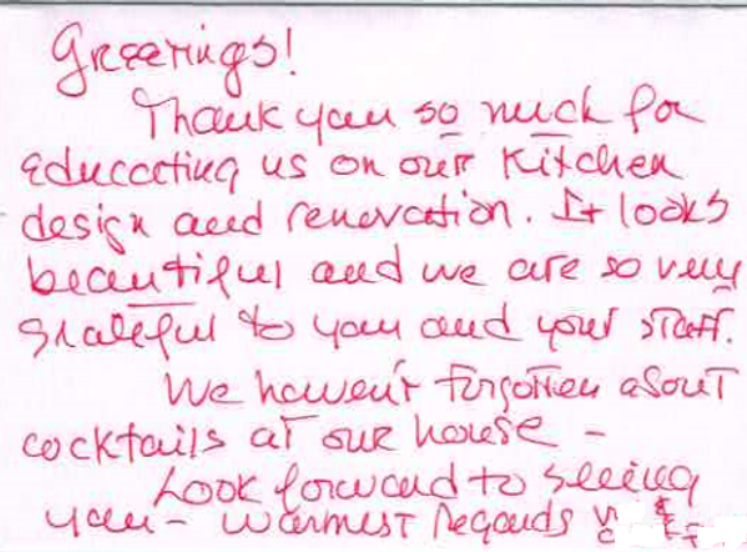 Greetings!
Thank you so much for
educating us on our kitchen
design and renovation. It looks
beautiful and we are so very
grateful to you and your staff.
We haven't forgotten about
cocktails at our house -
Look forward to seeing
you - Warmest Regards